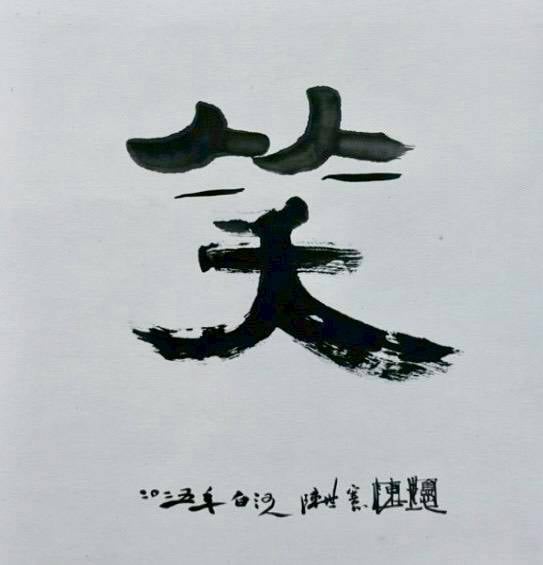 笑
二〇二五年 白河 陳世憲